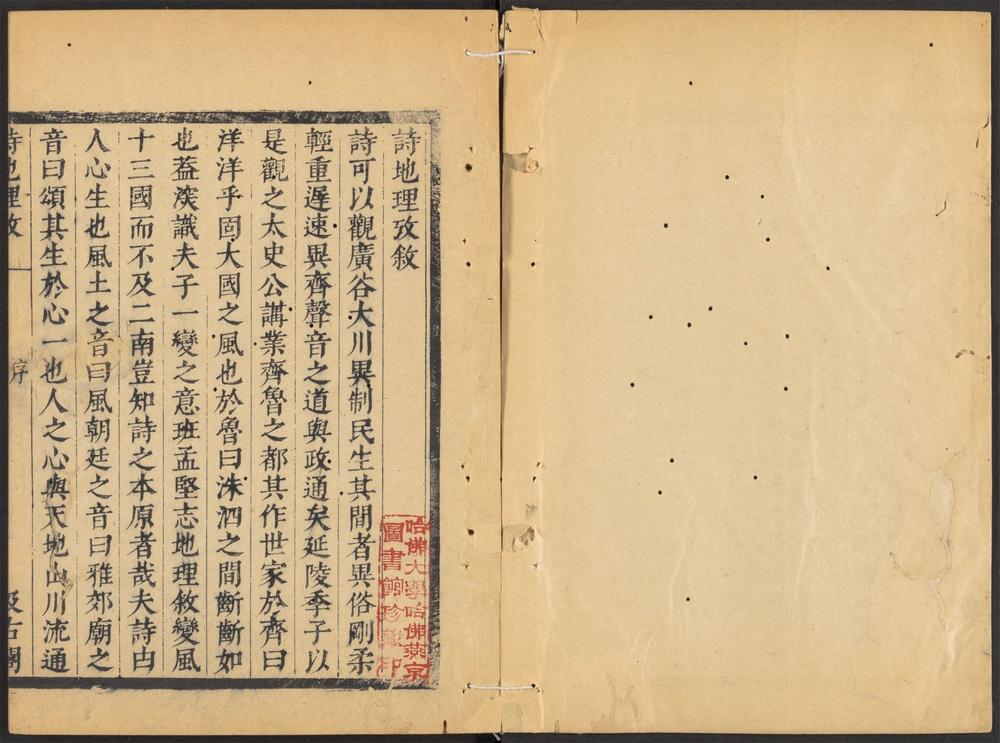 詩地理攷敘
詩可以觀廣谷大川異制民生其間者異俗剛柔
輕重遲速異齊聲音之道與政通矣延陵季子以
是觀之太史公講業齊魯之都其作世家於齊曰
洋洋乎固大國之風也於魯曰洙泗之間齗齗如
也葢深識夫子一變之意班孟堅志地理敘變風
十三國而不及二南豈知詩之本原者哉夫詩由
人心生也風土之音曰風朝廷之音曰雅郊廟之
音曰頌其生於心一也人之心與天地山川流通
詩地理攷
序
汲古閣
哈佛大學哈佛燕京
圖書館珍藏印